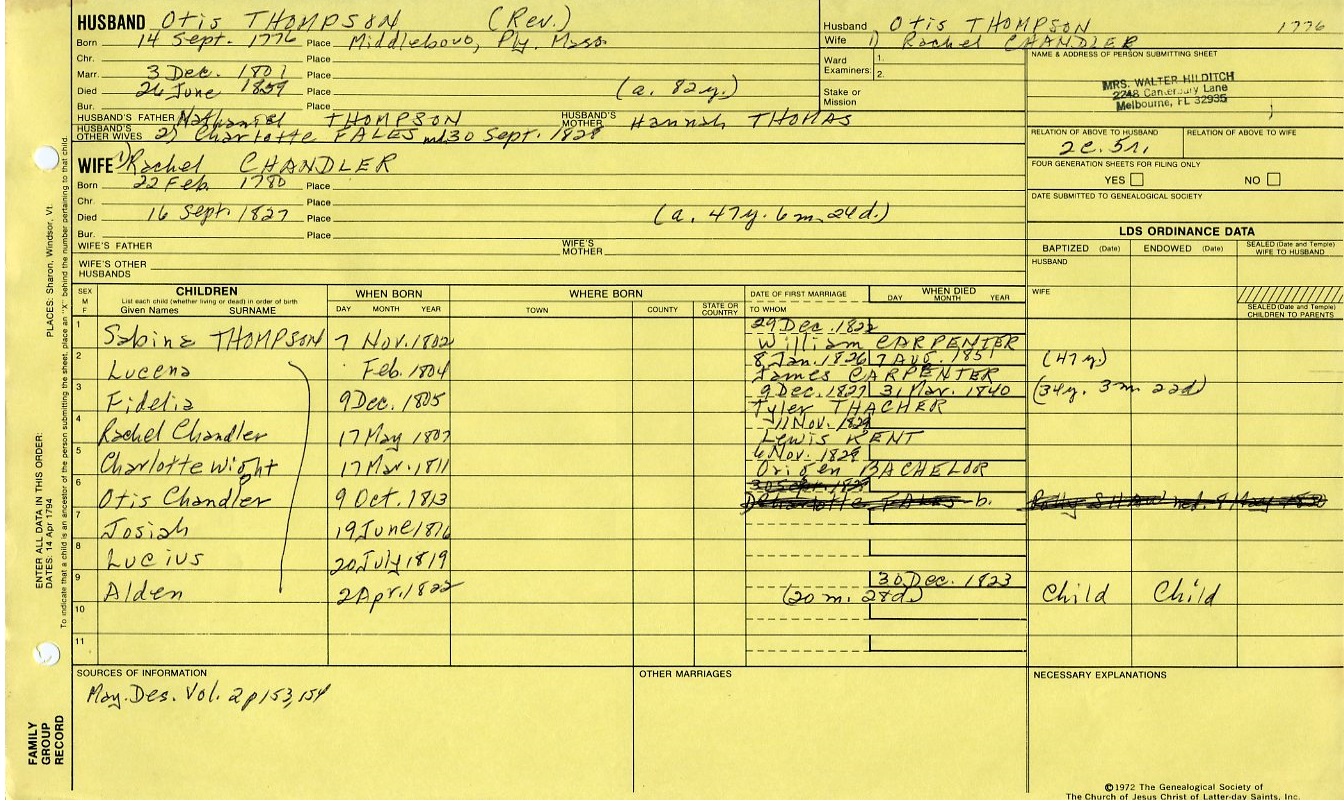 HUSBAND Otis THOMPSON (Rev.)
Born 14 Sept. 1776 Place Middleboro, Ply. Mass
Chr. Place
Marr. 3 Dec. 1801 Place
Died 26 June 1859 Place (a. 82y.)
Bur. Place
HUSBAND'S FATHER Nathaniel THOMPSON HUSBAND'S MOTHER Hannah THOMAS
HUSBAND'S OTHER WIVES 2) Charlotte FALES md 30 Sept. 1828
Husband Otis THOMPSON 1776
Wife 1) Rachel CHANDLER
Ward 1.
Examiners: 2.
Stake or Mission
NAME & ADDRESS OF PERSON SUBMITTING SHEET
MRS. WALTER HILDITCH
2248 Canterbury Lane
Melbourne, FL 32935
RELATION OF ABOVE TO HUSBAND RELATION OF ABOVE TO WIFE
2c. 5r.
FOUR GENERATION SHEETS FOR FILING ONLY
YES NO
DATE SUBMITTED TO GENEALOGICAL SOCIETY
WIFE 1) Rachel CHANDLER
Born 22 Feb. 1780 Place
Chr. Place
Died 16 Sept. 1827 Place (a. 47y. 6m. 24d.)
Bur. Place
WIFE'S FATHER WIFE'S MOTHER
WIFE'S OTHER HUSBANDS
LDS ORDINANCE DATA
BAPTIZED (Date) ENDOWED (Date) SEALED (Date and Temple) WIFE TO HUSBAND
HUSBAND
WIFE
SEALED (Date and Temple) CHILDREN TO PARENTS
SEX M F
CHILDREN
List each child (whether living or dead) in order of birth
Given Names SURNAME
WHEN BORN
DAY MONTH YEAR
WHERE BORN
TOWN COUNTY STATE OR COUNTRY
DATE OF FIRST MARRIAGE
TO WHOM
WHEN DIED
DAY MONTH YEAR
1 Sabina THOMPSON 7 Nov. 1802 29 Dec. 1822
William CARPENTER
2 Lucena Feb. 1804 8 Jan. 1826 7 Aug. 1851 (47 y.)
James CARPENTER
3 Fidelia 9 Dec. 1805 9 Dec. 1827 31 Mar. 1840 (34y. 3m. 22d)
Tyler THACHER
4 Rachel Chandler 17 May 1807 11 Nov. 1829
Lewis KENT
5 Charlotte Wight 17 Mar. 1811 6 Nov. 1829
Origen BACHELOR
6 Otis Chandler 9 Oct. 1813 30 Sept. 1828
Charlotte FALES b.
7 Josiah 19 June 1816
8 Lucius 20 July 1819
9 Alden 2 Apr. 1822 30 Dec. 1823
(20 m. 28d.) Child Child
10
11
SOURCES OF INFORMATION
May. Des. Vol. 2 p 153, 154
OTHER MARRIAGES
NECESSARY EXPLANATIONS
©1972 The Genealogical Society of
The Church of Jesus Christ of Latter-day Saints, Inc.
PLACES: Sharon, Windsor, Vt.
ENTER ALL DATA IN THIS ORDER:
DATES: 14 Apr 1794
To indicate that a child is an ancestor of the person submitting the sheet, place an "X" behind the number pertaining to that child.
FAMILY
GROUP
RECORD